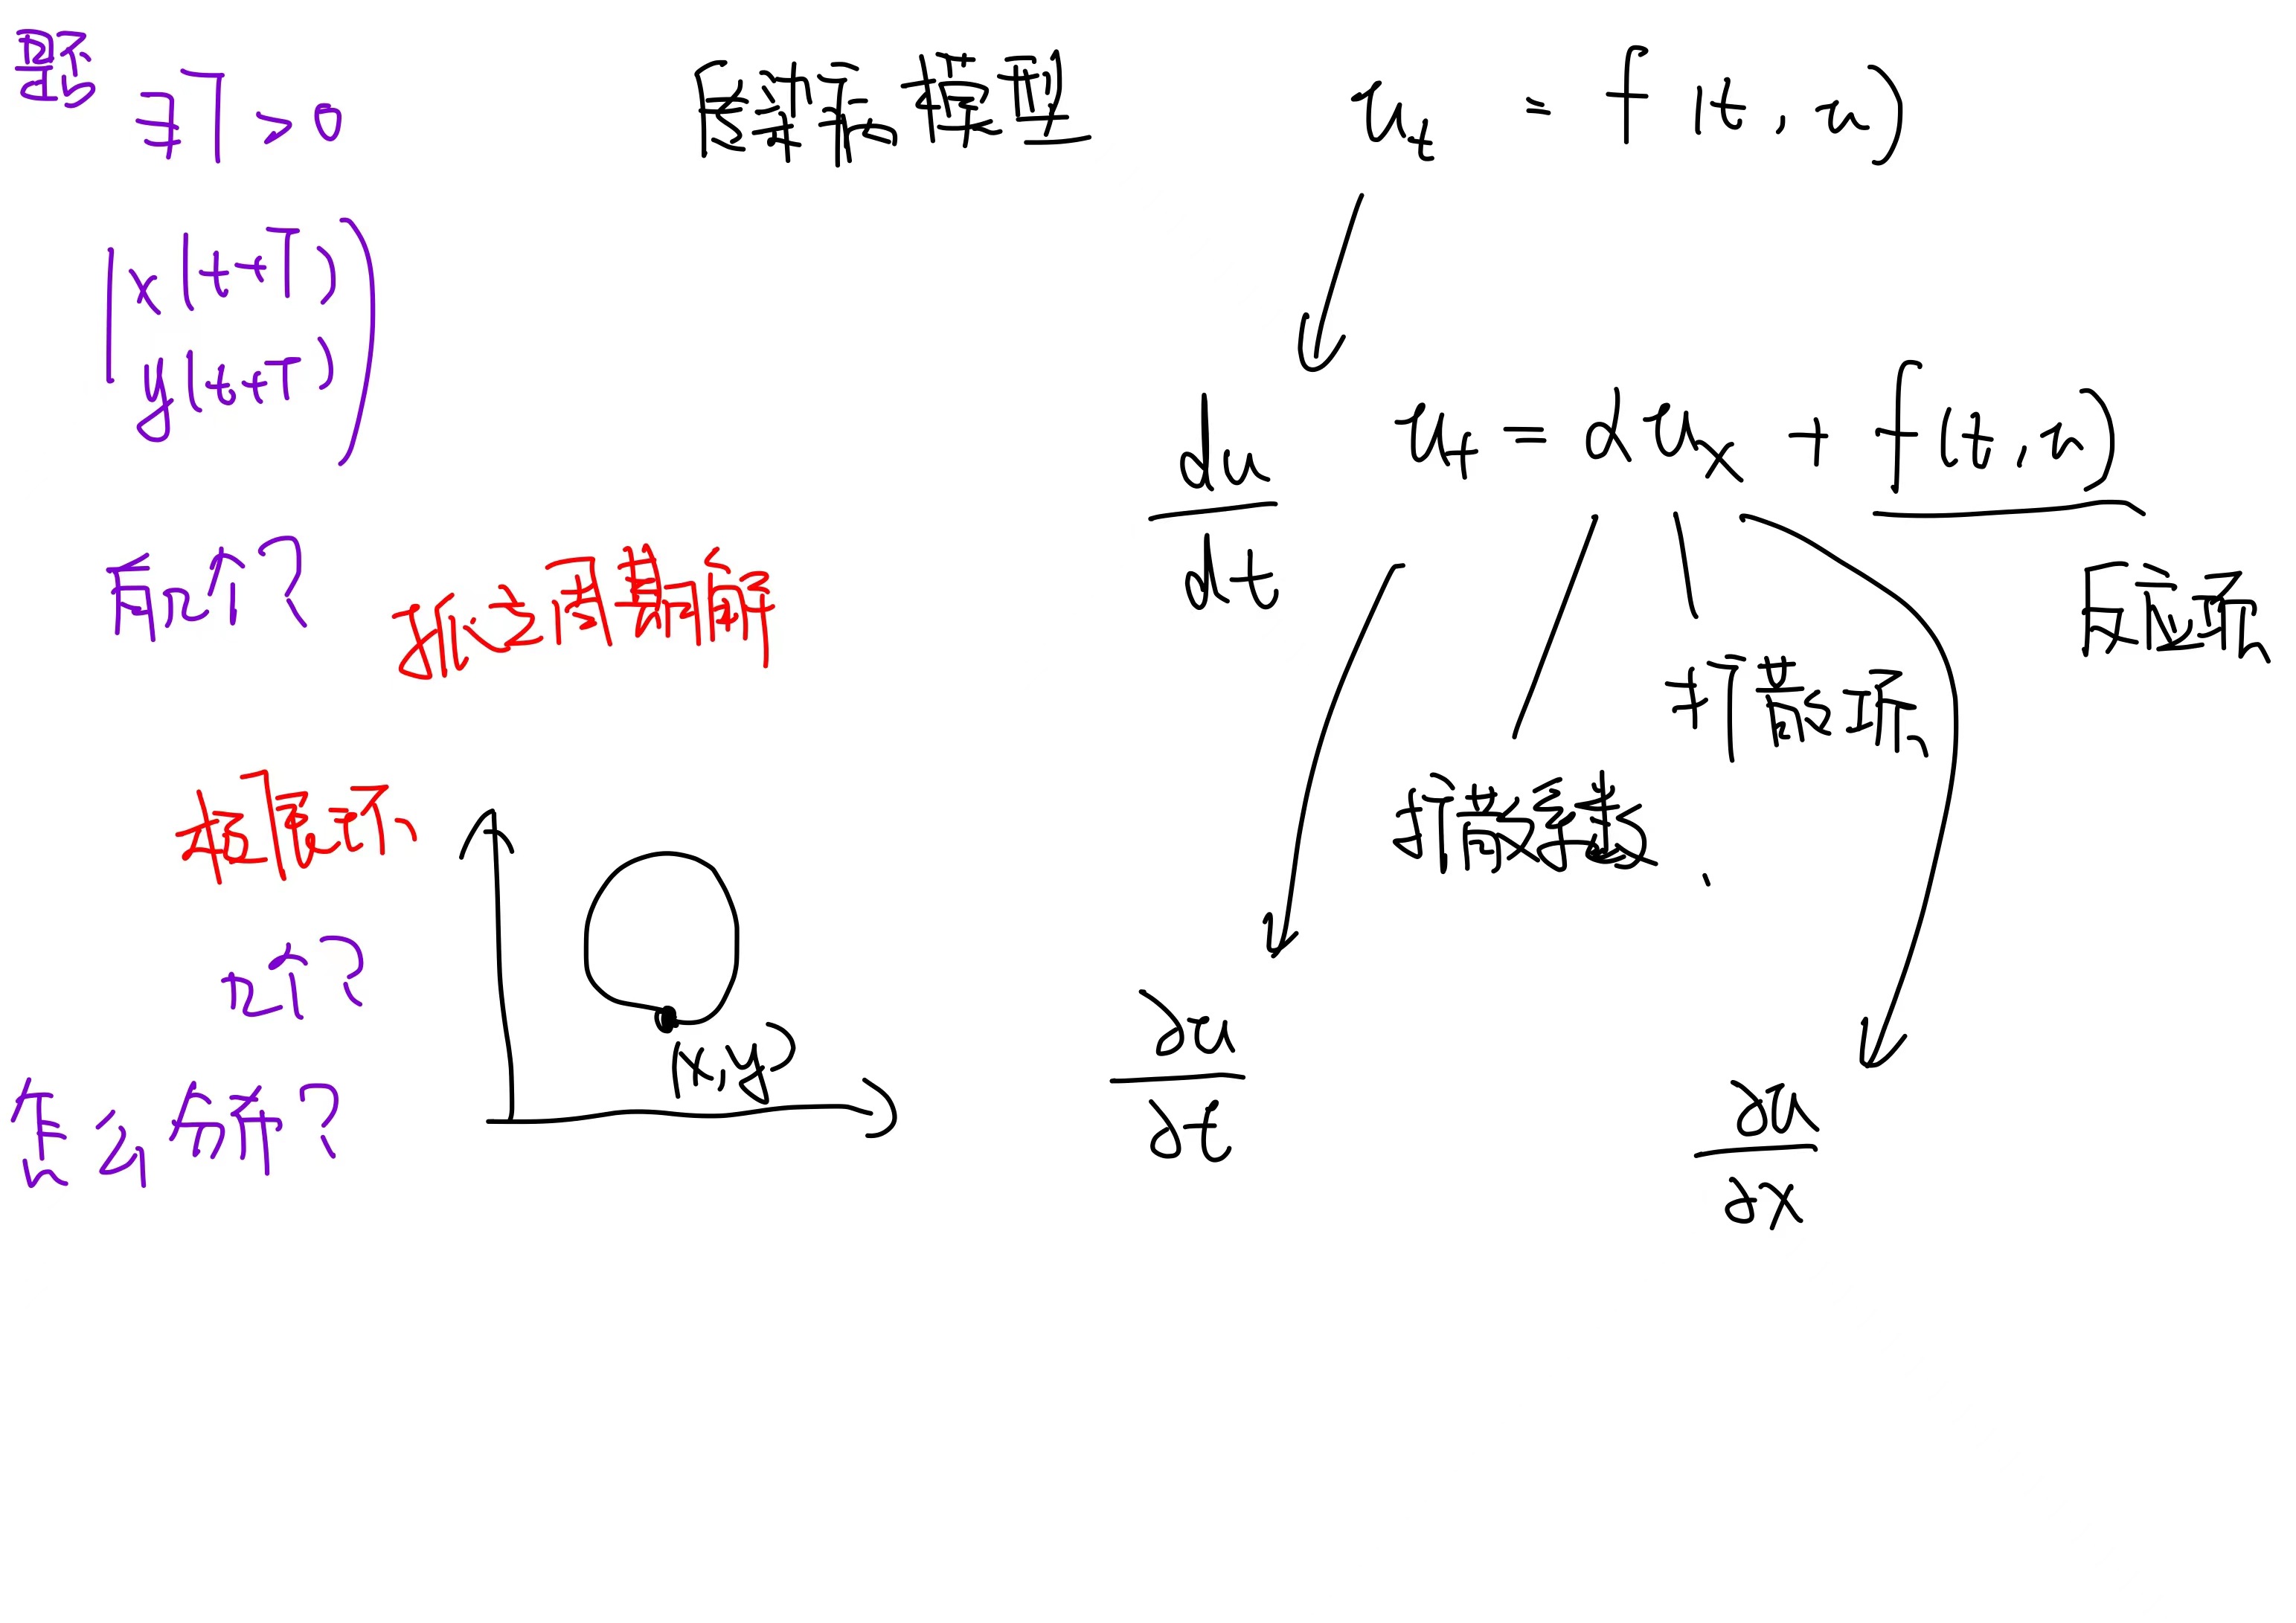 题
∃T > 0
(x(t+T)
y(t+T))
有几个?
孤立周期解
极限环
几个?
怎么分布?
(x, y)
传染病模型
u_t = f(t, u)
du/dt
u_t = d u_x + f(t, u)
反应项
扩散项
扩散系数
∂u/∂t
∂u/∂x